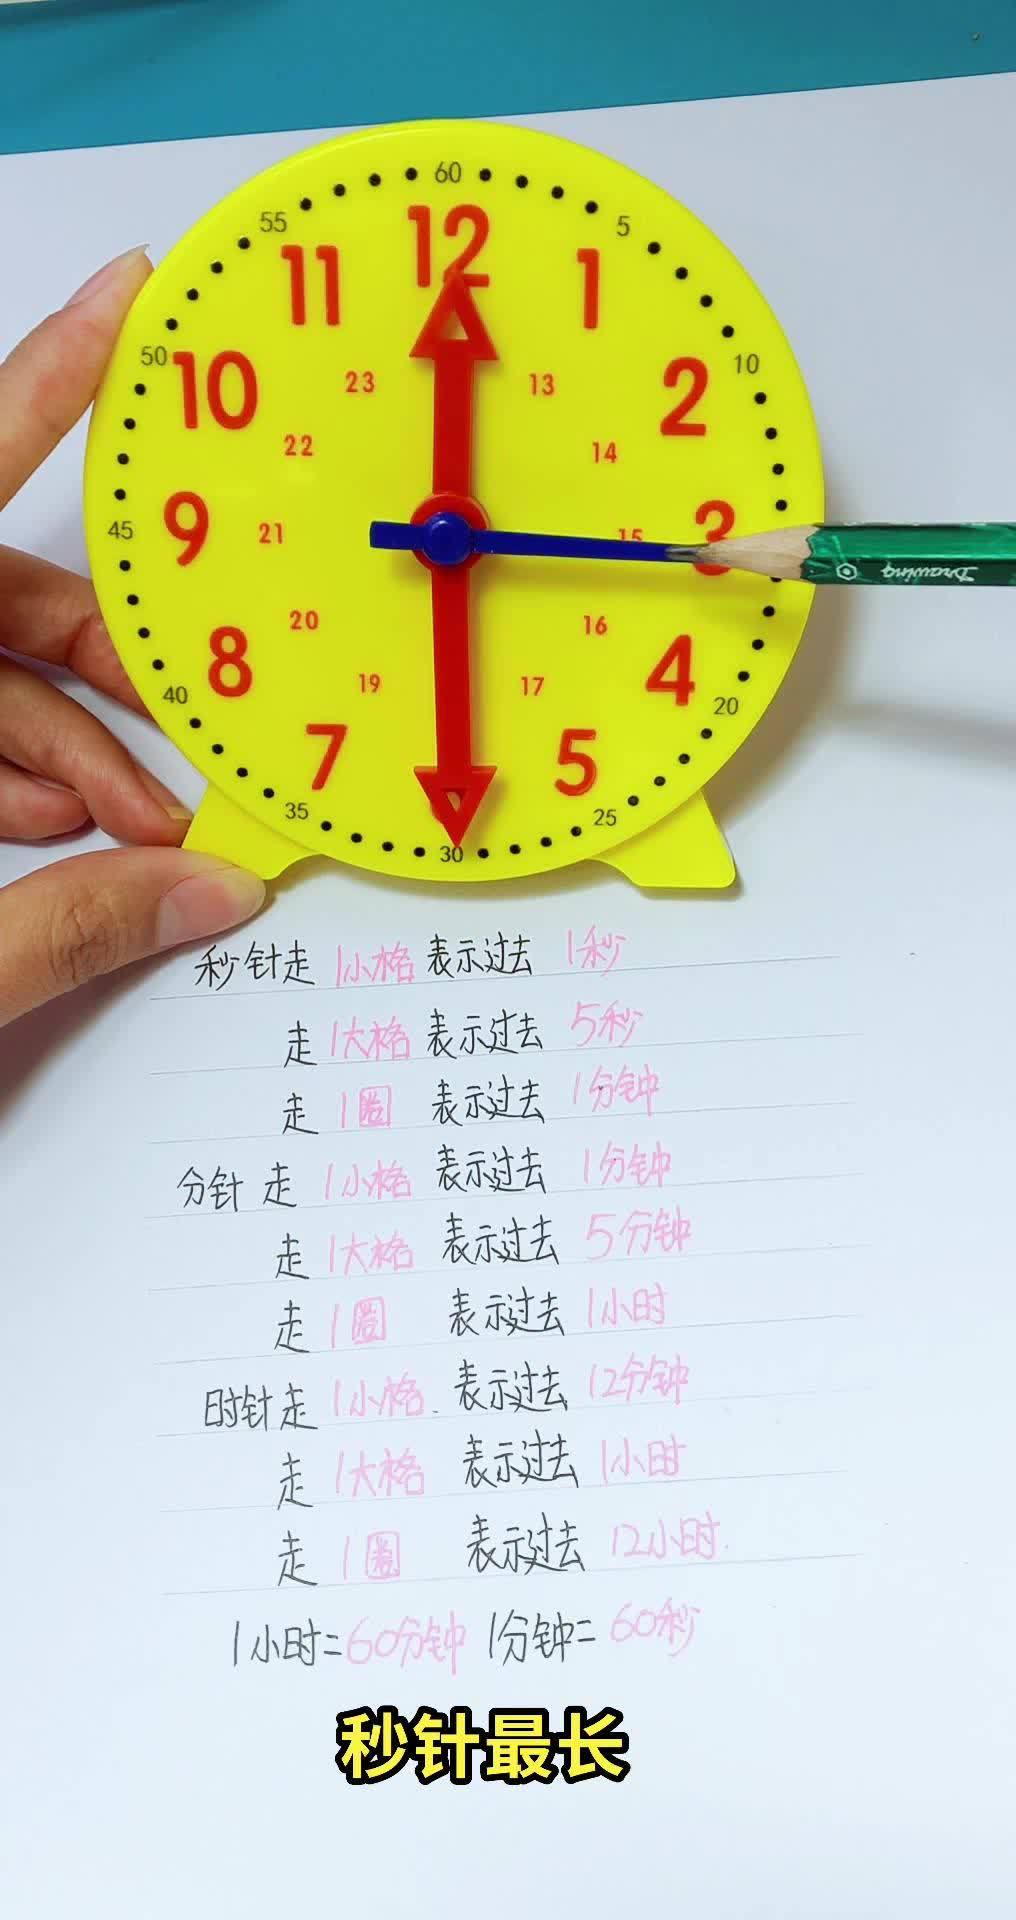 60
55 5
12
11 1
50 10
10 2
23 13
22 14
9 3
45 21 15
Drawing
20 16
8 4
19 17
40 20
7 5
35 25
30
秒针走 1小格 表示过去 1秒
走 1大格 表示过去 5秒
走 1圈 表示过去 1分钟
分针 走 1小格 表示过去 1分钟
走 1大格 表示过去 5分钟
走 1圈 表示过去 1小时
时针走 1小格. 表示过去 12分钟
走 1大格 表示过去 1小时
走 1圈 表示过去 12小时.
1小时=60分钟 1分钟=60秒
秒针最长